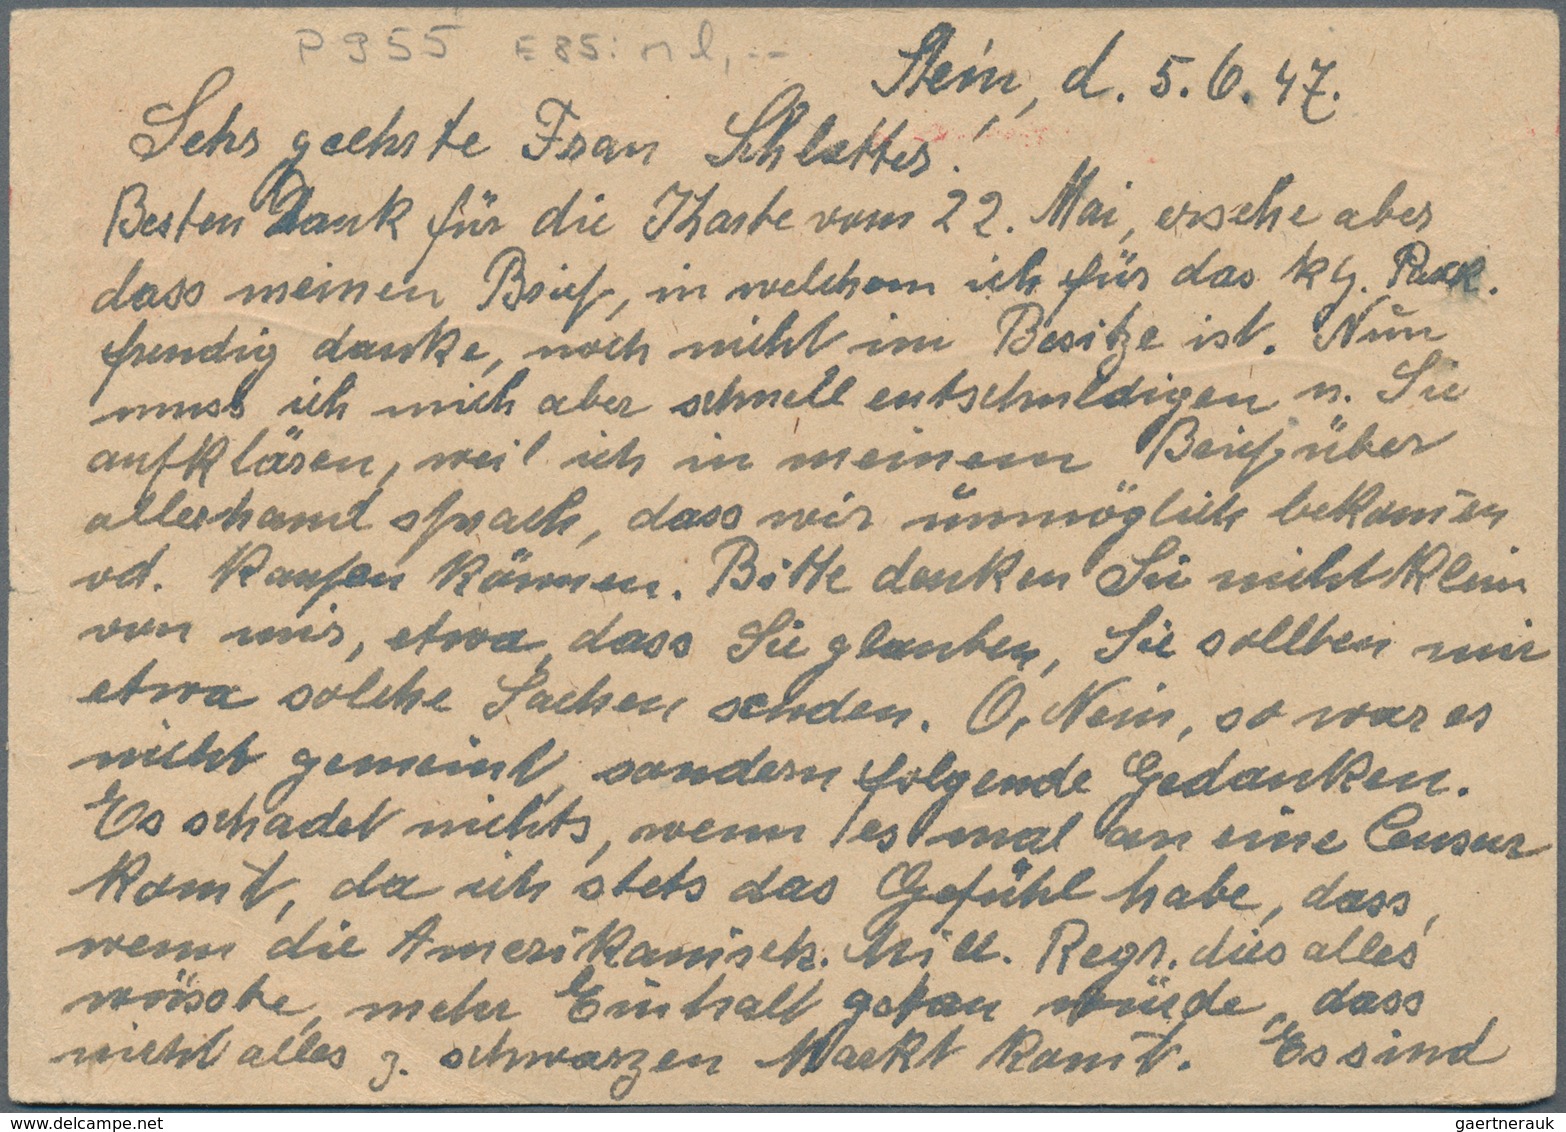 P 955 E 85:
Stein, d. 5.6.47.
Sehr geehrte Frau Schlatter!
Besten Dank für die Kharte vom 22. Mai, ersehe aber
dass meinen Brief, in welchem ich für das kg. Pack.
freudig danke, noch nicht im Besitze ist. Nun
muss ich mich aber schnell entschuldigen u. Sie
aufklären, weil ich in meinem Brief über
allerhand sprach, dass wir unmöglich bekom̄en
od. kaufen können. Bitte denken Sie nicht klein
von mir, etwa, dass Sie glauben, Sie sollten mir
etwa solche Sachen senden. O, Nein, so war es
nicht gemeint, sondern folgende Gedanken.
Es schadet nichts, wenn es mal an eine Censur
kom̄t, da ich stets das Gefühl habe, dass,
wenn die Amerikanisch. Mill. Regr. dies alles
wüsste, mehr Einhalt getan würde, dass
nicht alles z. schwarzen Markt kom̄t. Es sind
gaertnerauk